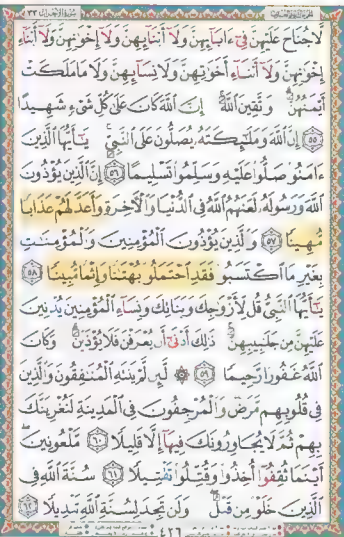 سورة الأحزاب ٣٣
لَّا جُنَاحَ عَلَيْهِنَّ فِىٓ ءَابَآئِهِنَّ وَلَآ أَبْنَآئِهِنَّ وَلَآ إِخْوَٰنِهِنَّ وَلَآ أَبْنَآءِ
إِخْوَٰنِهِنَّ وَلَآ أَبْنَآءِ أَخَوَٰتِهِنَّ وَلَا نِسَآئِهِنَّ وَلَا مَا مَلَكَتْ
أَيْمَٰنُهُنَّ ۗ وَٱتَّقِينَ ٱللَّهَ ۚ إِنَّ ٱللَّهَ كَانَ عَلَىٰ كُلِّ شَىْءٍ شَهِيدًا
٥٥ إِنَّ ٱللَّهَ وَمَلَٰٓئِكَتَهُۥ يُصَلُّونَ عَلَى ٱلنَّبِىِّ ۚ يَٰٓأَيُّهَا ٱلَّذِينَ
ءَامَنُوا۟ صَلُّوا۟ عَلَيْهِ وَسَلِّمُوا۟ تَسْلِيمًا ٥٦ إِنَّ ٱلَّذِينَ يُؤْذُونَ
ٱللَّهَ وَرَسُولَهُۥ لَعَنَهُمُ ٱللَّهُ فِى ٱلدُّنْيَا وَٱلْـَٔاخِرَةِ وَأَعَدَّ لَهُمْ عَذَابًا
مُّهِينًا ٥٧ وَٱلَّذِينَ يُؤْذُونَ ٱلْمُؤْمِنِينَ وَٱلْمُؤْمِنَٰتِ
بِغَيْرِ مَا ٱكْتَسَبُوا۟ فَقَدِ ٱحْتَمَلُوا۟ بُهْتَٰنًا وَإِثْمًا مُّبِينًا ٥٨
يَٰٓأَيُّهَا ٱلنَّبِىُّ قُل لِّأَزْوَٰجِكَ وَبَنَاتِكَ وَنِسَآءِ ٱلْمُؤْمِنِينَ يُدْنِينَ
عَلَيْهِنَّ مِن جَلَٰبِيبِهِنَّ ۚ ذَٰلِكَ أَدْنَىٰٓ أَن يُعْرَفْنَ فَلَا يُؤْذَيْنَ ۗ وَكَانَ
ٱللَّهُ غَفُورًا رَّحِيمًا ٥٩ ۞ لَّئِن لَّمْ يَنتَهِ ٱلْمُنَٰفِقُونَ وَٱلَّذِينَ
فِى قُلُوبِهِم مَّرَضٌ وَٱلْمُرْجِفُونَ فِى ٱلْمَدِينَةِ لَنُغْرِيَنَّكَ
بِهِمْ ثُمَّ لَا يُجَاوِرُونَكَ فِيهَآ إِلَّا قَلِيلًا ٦٠ مَّلْعُونِينَ ۖ
أَيْنَمَا ثُقِفُوٓا۟ أُخِذُوا۟ وَقُتِّلُوا۟ تَقْتِيلًا ٦١ سُنَّةَ ٱللَّهِ فِى
ٱلَّذِينَ خَلَوْا۟ مِن قَبْلُ ۖ وَلَن تَجِدَ لِسُنَّةِ ٱللَّهِ تَبْدِيلًا ٦٢
٤٢٦